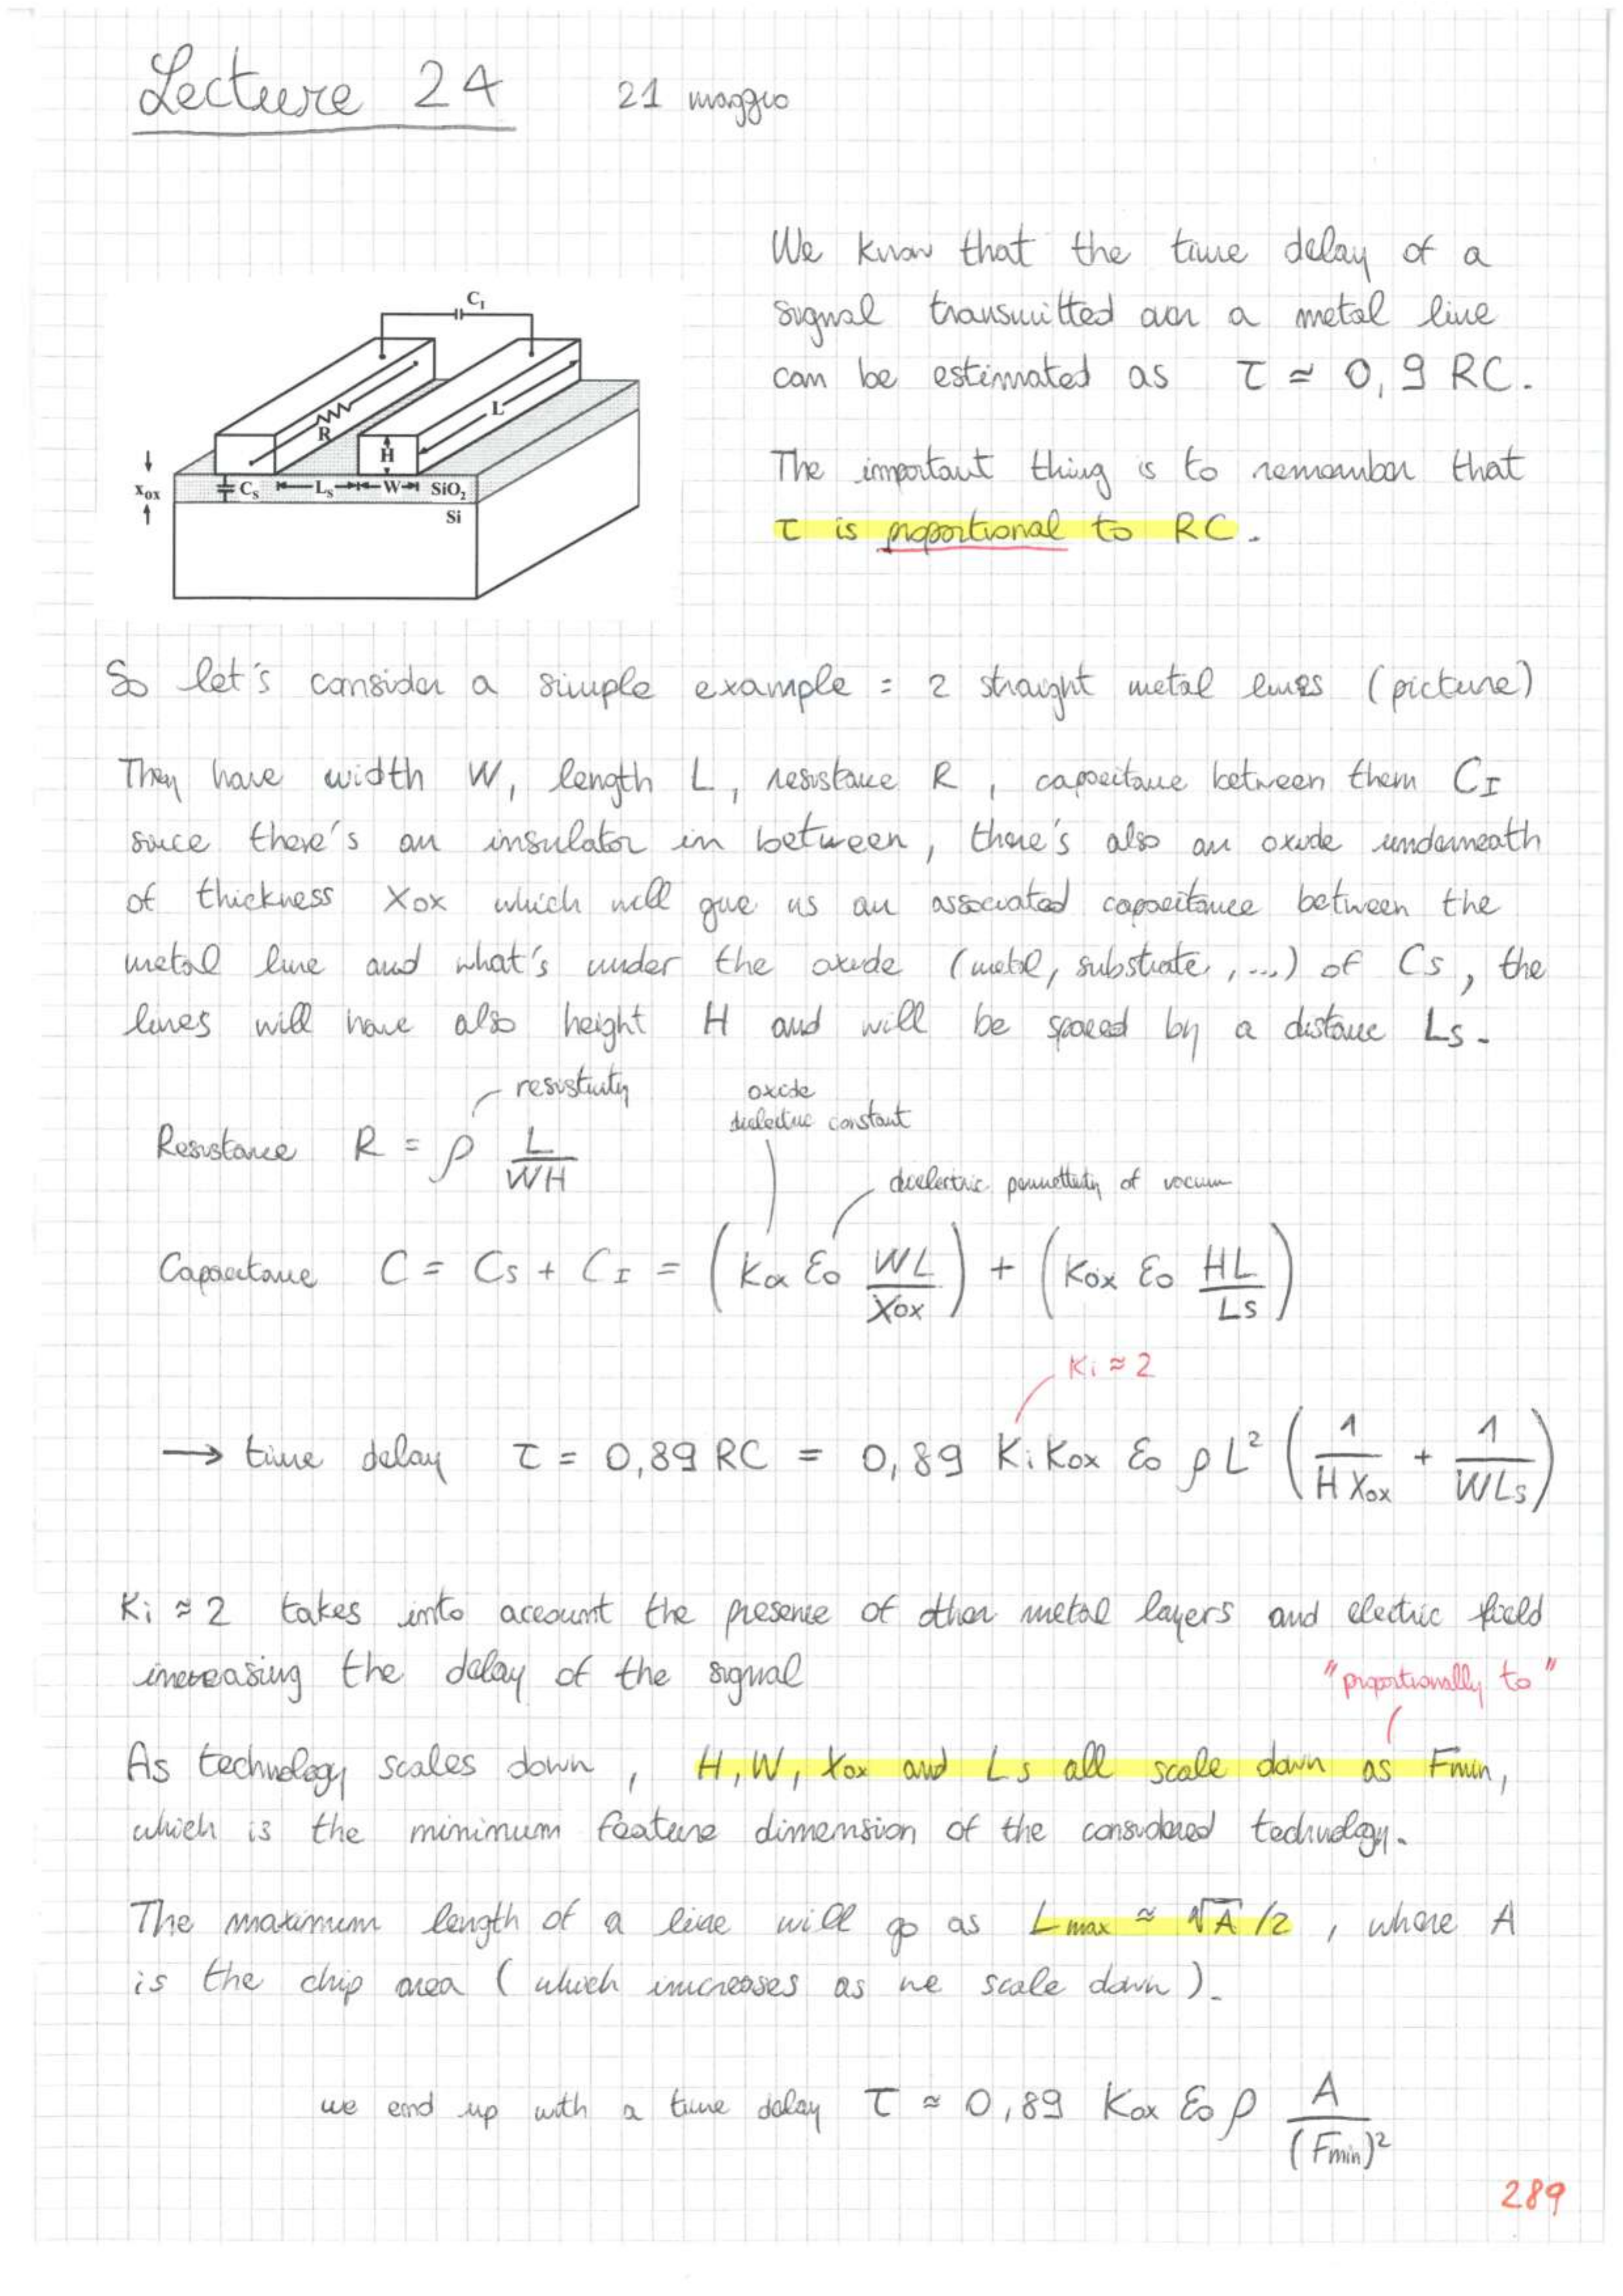 Lecture 24 21 maggio
We know that the time delay of a
signal transmitted over a metal line
can be estimated as τ ≃ 0,9 RC.
The important thing is to remember that
τ is proportional to RC.
C_I
R
L
H
x_ox
C_s L_s W SiO₂
Si
So let's consider a simple example : 2 straight metal lines (picture)
They have width W, length L, resistance R, capacitance between them C_I
since there's an insulator in between, there's also an oxide underneath
of thickness Xox which will give us an associated capacitance between the
metal line and what's under the oxide (metal, substrate, ...) of Cs, the
lines will have also height H and will be spaced by a distance Ls.
resistivity
oxide
dielectric constant
Resistance R = ρ L/WH
dielectric permettivity of vacuum
Capacitance C = Cs + C_I = (Kox ε₀ WL/Xox) + (Kox ε₀ HL/Ls)
Ki ≈ 2
→ time delay τ = 0,89 RC = 0,89 Ki Kox ε₀ ρ L² (1/HXox + 1/WLs)
Ki ≈ 2 takes into account the presence of other metal layers and electric field
increasing the delay of the signal
"proportionally to"
As technology scales down, H, W, Xox and Ls all scale down as Fmin,
which is the minimum feature dimension of the considered technology.
The maximum length of a line will go as Lmax ≈ √A /2, where A
is the chip area (which increases as we scale down).
we end up with a time delay τ ≈ 0,89 Kox ε₀ ρ A/(Fmin)²
289